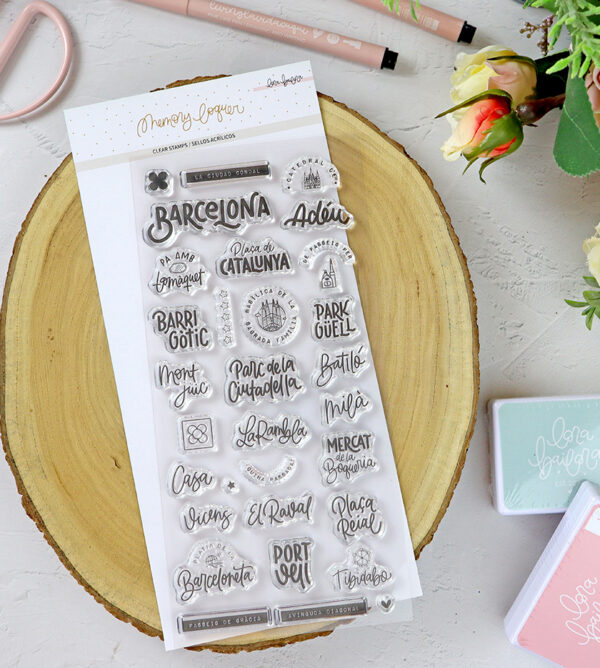 Lora Bailora
Memory Loquer
CLEAR STAMPS / SELLOS ACRÍLICOS
LA CIUDAD CONDAL
CATEDRAL DE
BARCELONA
Adéu
PA AMB
tomàquet
Plaça de
CATALUNYA
DE PASSEIG PER
BARRI
GÒTIC
BASÍLICA DE LA
SAGRADA FAMÍLIA
PARK
GÜELL
Mont
juïc
Parc de la
Ciutadella
Batlló
Milà
La Rambla
MERCAT
de la
Boqueria
Casa
QUINA PASSADA!
Vicens
El Raval
Plaça
Reial
PLATJA DE LA
Barceloneta
PORT
Vell
Tibidabo
PASSEIG DE GRÀCIA
AVINGUDA DIAGONAL
lora
bailora
lora